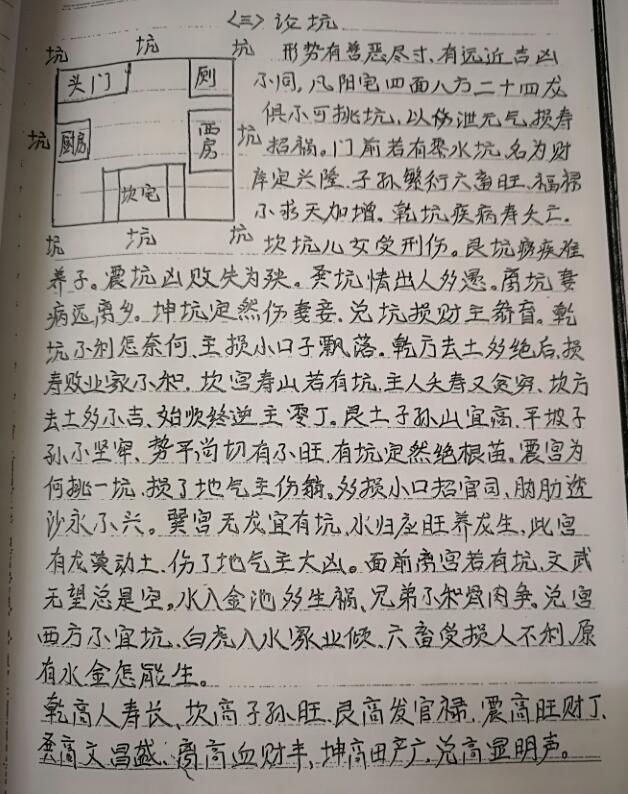 〈三〉论坑
坑 坑 坑 形势有善恶尽寸、有远近吉凶
头门 厕 不同,凡阳宅四面八方二十四龙
俱不可挑坑,以伤泄元气,损寿
坑 厨房 西房 坑 招祸。门前若有聚水坑,名为财
库定兴隆、子孙繁衍六畜旺、福禄
坎宅 不求天加增。乾坑疾病寿夭亡.
坑 坑 坑 坎坑儿女受刑伤。艮坑痨疾难
养子。震坑凶败失为殃。巽坑情出人多愚。离坑妻
病远离乡。坤坑定然伤妻妾.兑坑损财主
坑不利怎奈何、主损小口子飘落。乾方去土多绝后,损
寿败业家不和.坎宫寿山若有坑,主人夭寿又贫穷、坎方
去土多不吉、始顺终逆主零丁。艮土子孙山宜高,平坡子
孙不坚牢、势平尚切有小旺、有坑定然绝根苗。震宫为
何挑一坑、损了地气主伤。多损小口招官司,肋
沙永不兴。巽宫无龙宜有坑、水归库旺养龙生,此宫
有龙莫动土、伤了地气主大凶。面前离宫若有坑、文武
无望总是空,水入金池多生祸、兄弟不和骨肉争。兑宫
西方不宜坑、白虎入水家业倾、六畜受损人不利、原
有水金怎能生。
乾高人寿长、坎高子孙旺、艮高发官禄、震高旺财丁、
巽高文昌盛、离高血财丰,坤高田产广、兑高显明声。